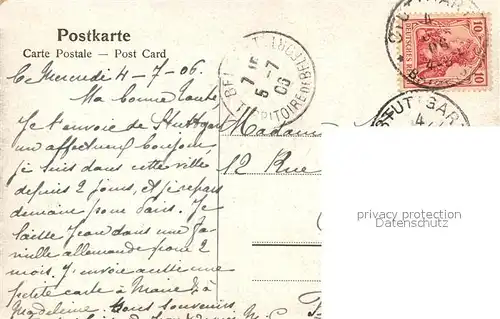 Postkarte
Carte Postale – Post Card
Mercredi 4-7-06.
Ma bonne tante,
Je t'envoie de Stuttgart
un affectueux bonjour,
je suis dans cette ville
depuis 2 jours, et je repars
demain pour Paris. Je
laisse Jean dans une fa-
mille allemande pour 2
mois. J'envoie aussi une
petite carte à Marie & à
Madeleine. Bons souvenirs
Madame
12 Rue
BELFORT
TERRITOIRE DE BELFORT
5-7
06
STUTTGART
4
06
10 DEUTSCHES REICH 10
STUTTGART
4
privacy protection
www.oldthing.de